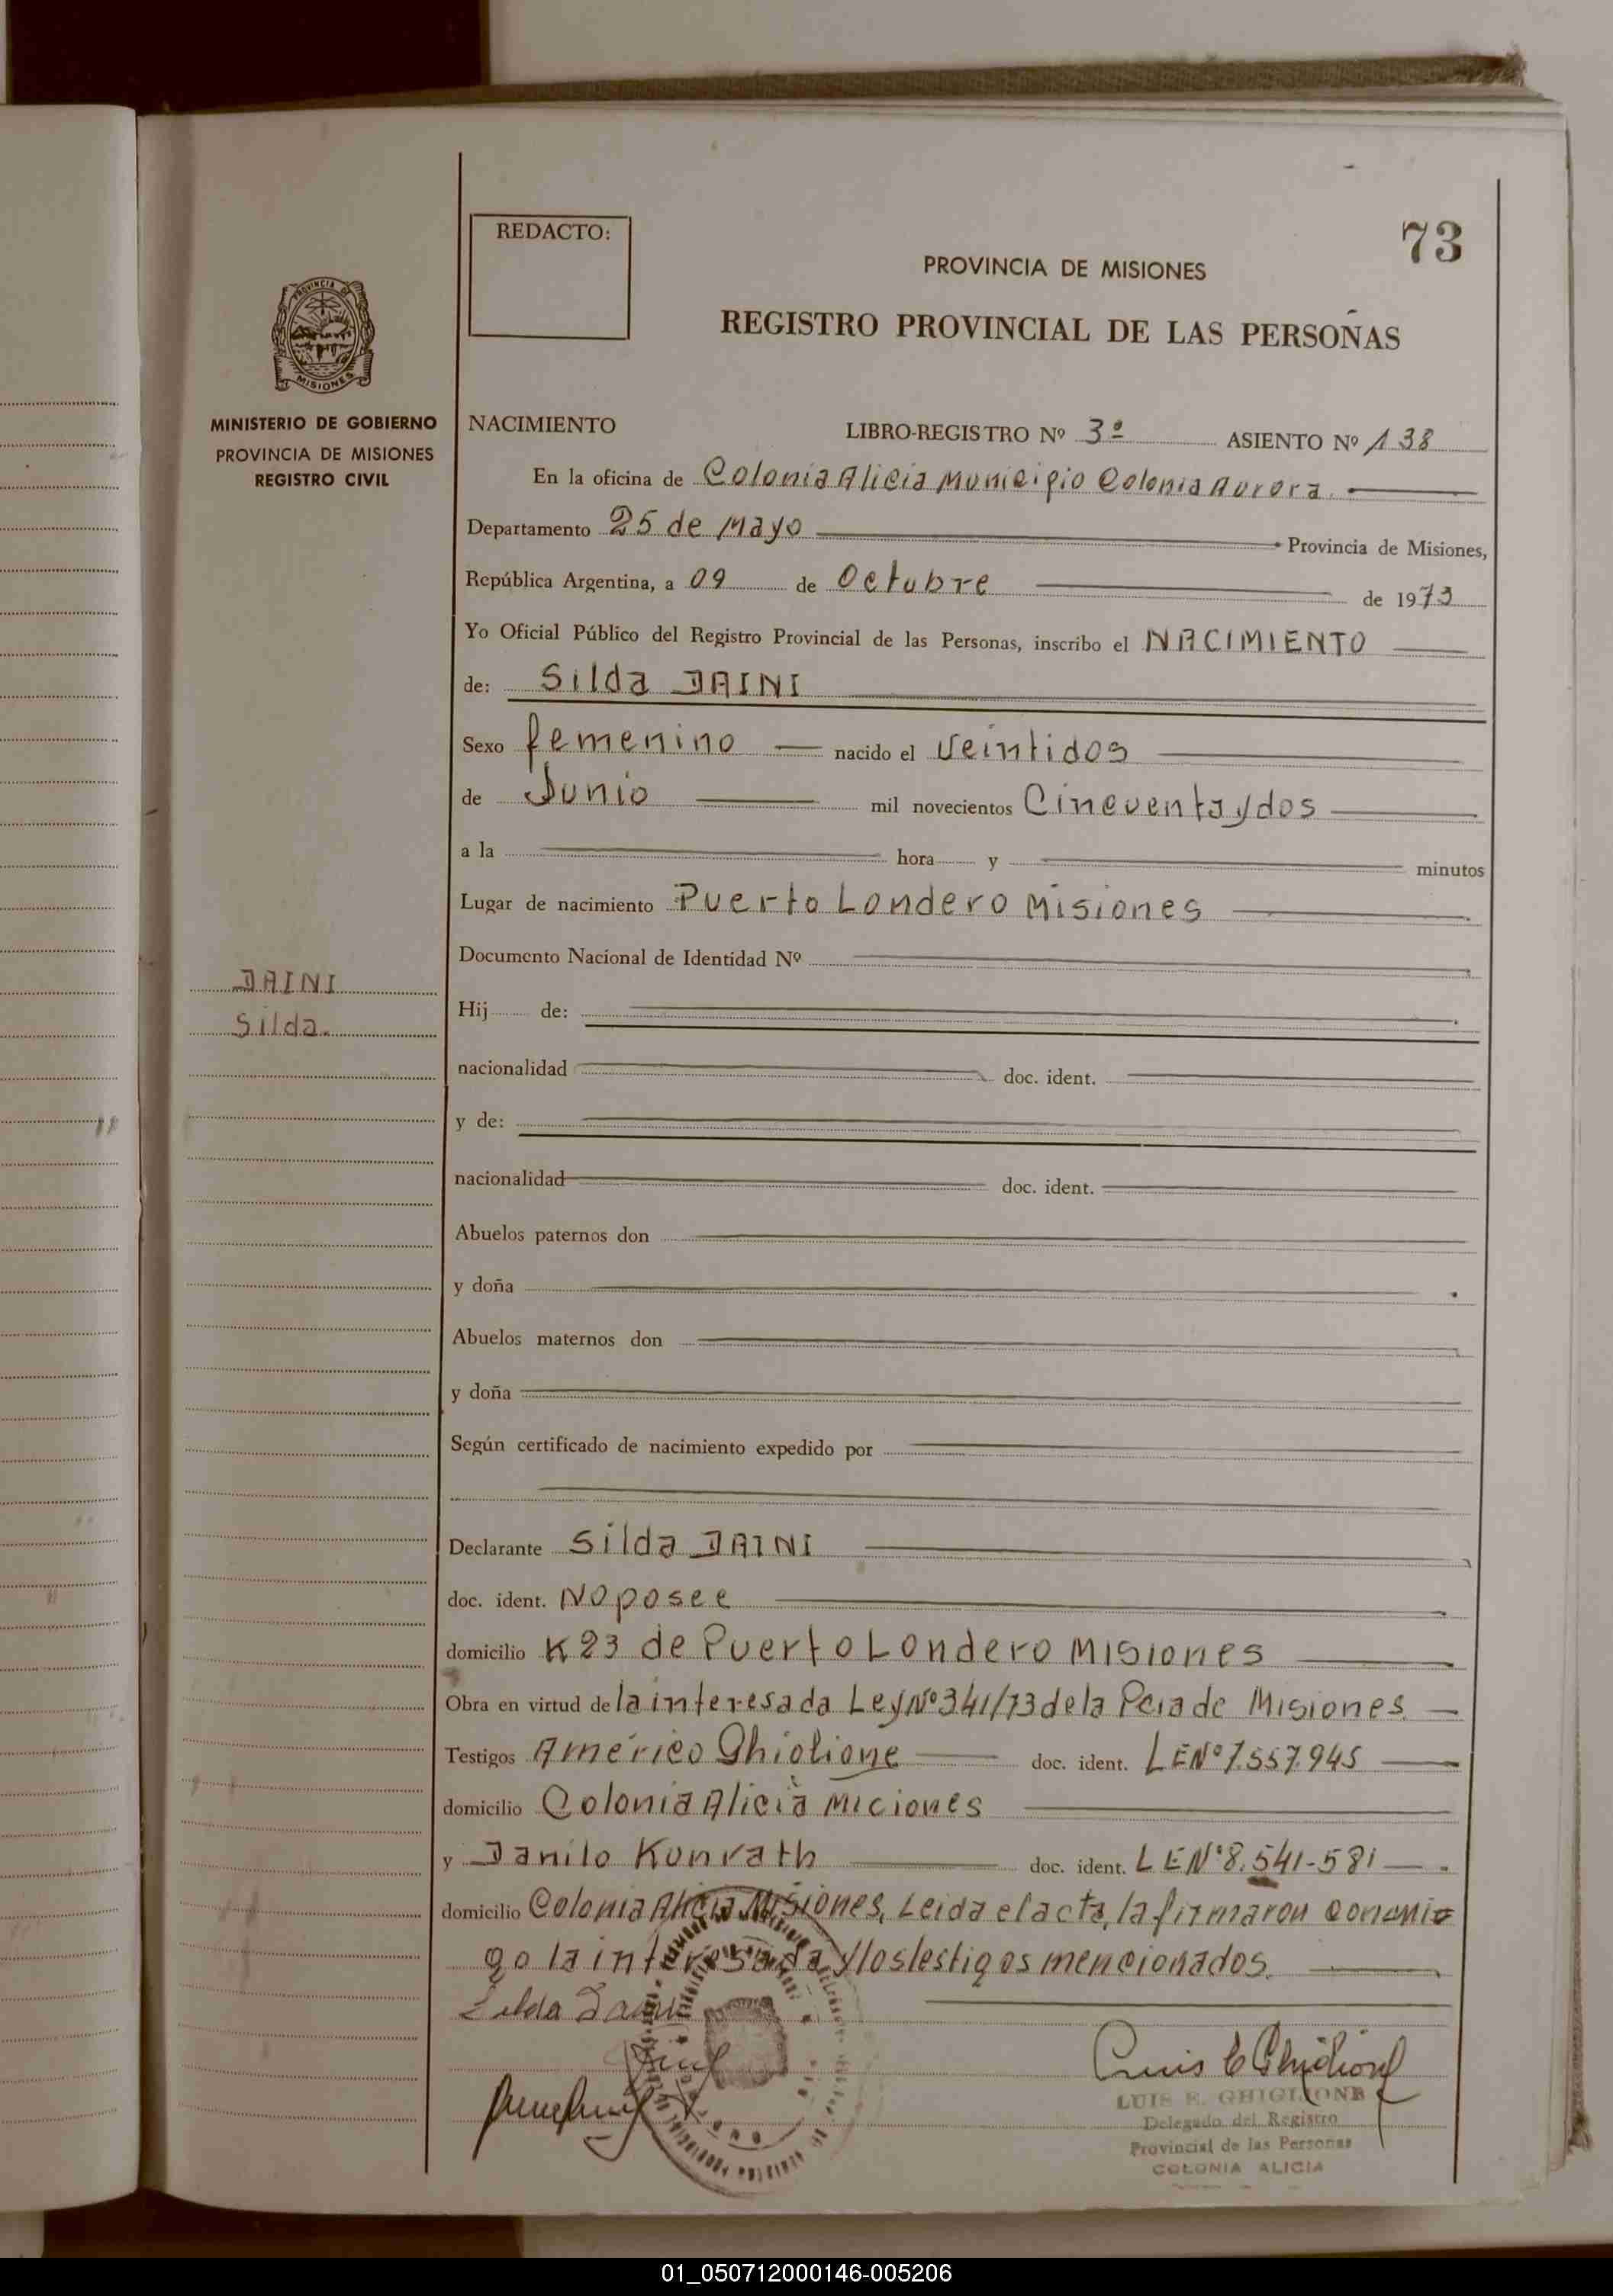 73
REDACTO:
PROVINCIA DE MISIONES
REGISTRO PROVINCIAL DE LAS PERSONAS
PROVINCIA DE
MISIONES
MINISTERIO DE GOBIERNO
PROVINCIA DE MISIONES
REGISTRO CIVIL
NACIMIENTO LIBRO-REGISTRO Nº 3º ASIENTO Nº 138
En la oficina de Colonia Alicia Municipio Colonia Aurora.
Departamento 25 de Mayo Provincia de Misiones,
República Argentina, a 09 de Octubre de 1973
Yo Oficial Público del Registro Provincial de las Personas, inscribo el NACIMIENTO
de: Silda DAINI
Sexo femenino nacido el veintidos
de Junio mil novecientos Cincuenta y dos
a la hora y minutos
Lugar de nacimiento Puerto Londero Misiones
Documento Nacional de Identidad Nº
DAINI
Silda.
Hij de:
nacionalidad doc. ident.
y de:
nacionalidad doc. ident.
Abuelos paternos don
y doña
Abuelos maternos don
y doña
Según certificado de nacimiento expedido por
Declarante Silda DAINI
doc. ident. No posee
domicilio K 23 de Puerto Londero Misiones
Obra en virtud de la interesada Ley Nº 341/73 de la Pcia de Misiones.
Testigos Américo Ghiolione doc. ident. LENº 7.557.945
domicilio Colonia Alicia Miciones
y Danilo Kunrath doc. ident. LENº 8.541-581
domicilio Colonia Alicia Misiones, Leida el acta, la firmaron conmi
go la interesada y los testigos mencionados.
Silda Daini
LUIS E. GHIGLIONE
Delegado del Registro
Provincial de las Personas
COLONIA ALICIA
01_050712000146-005206